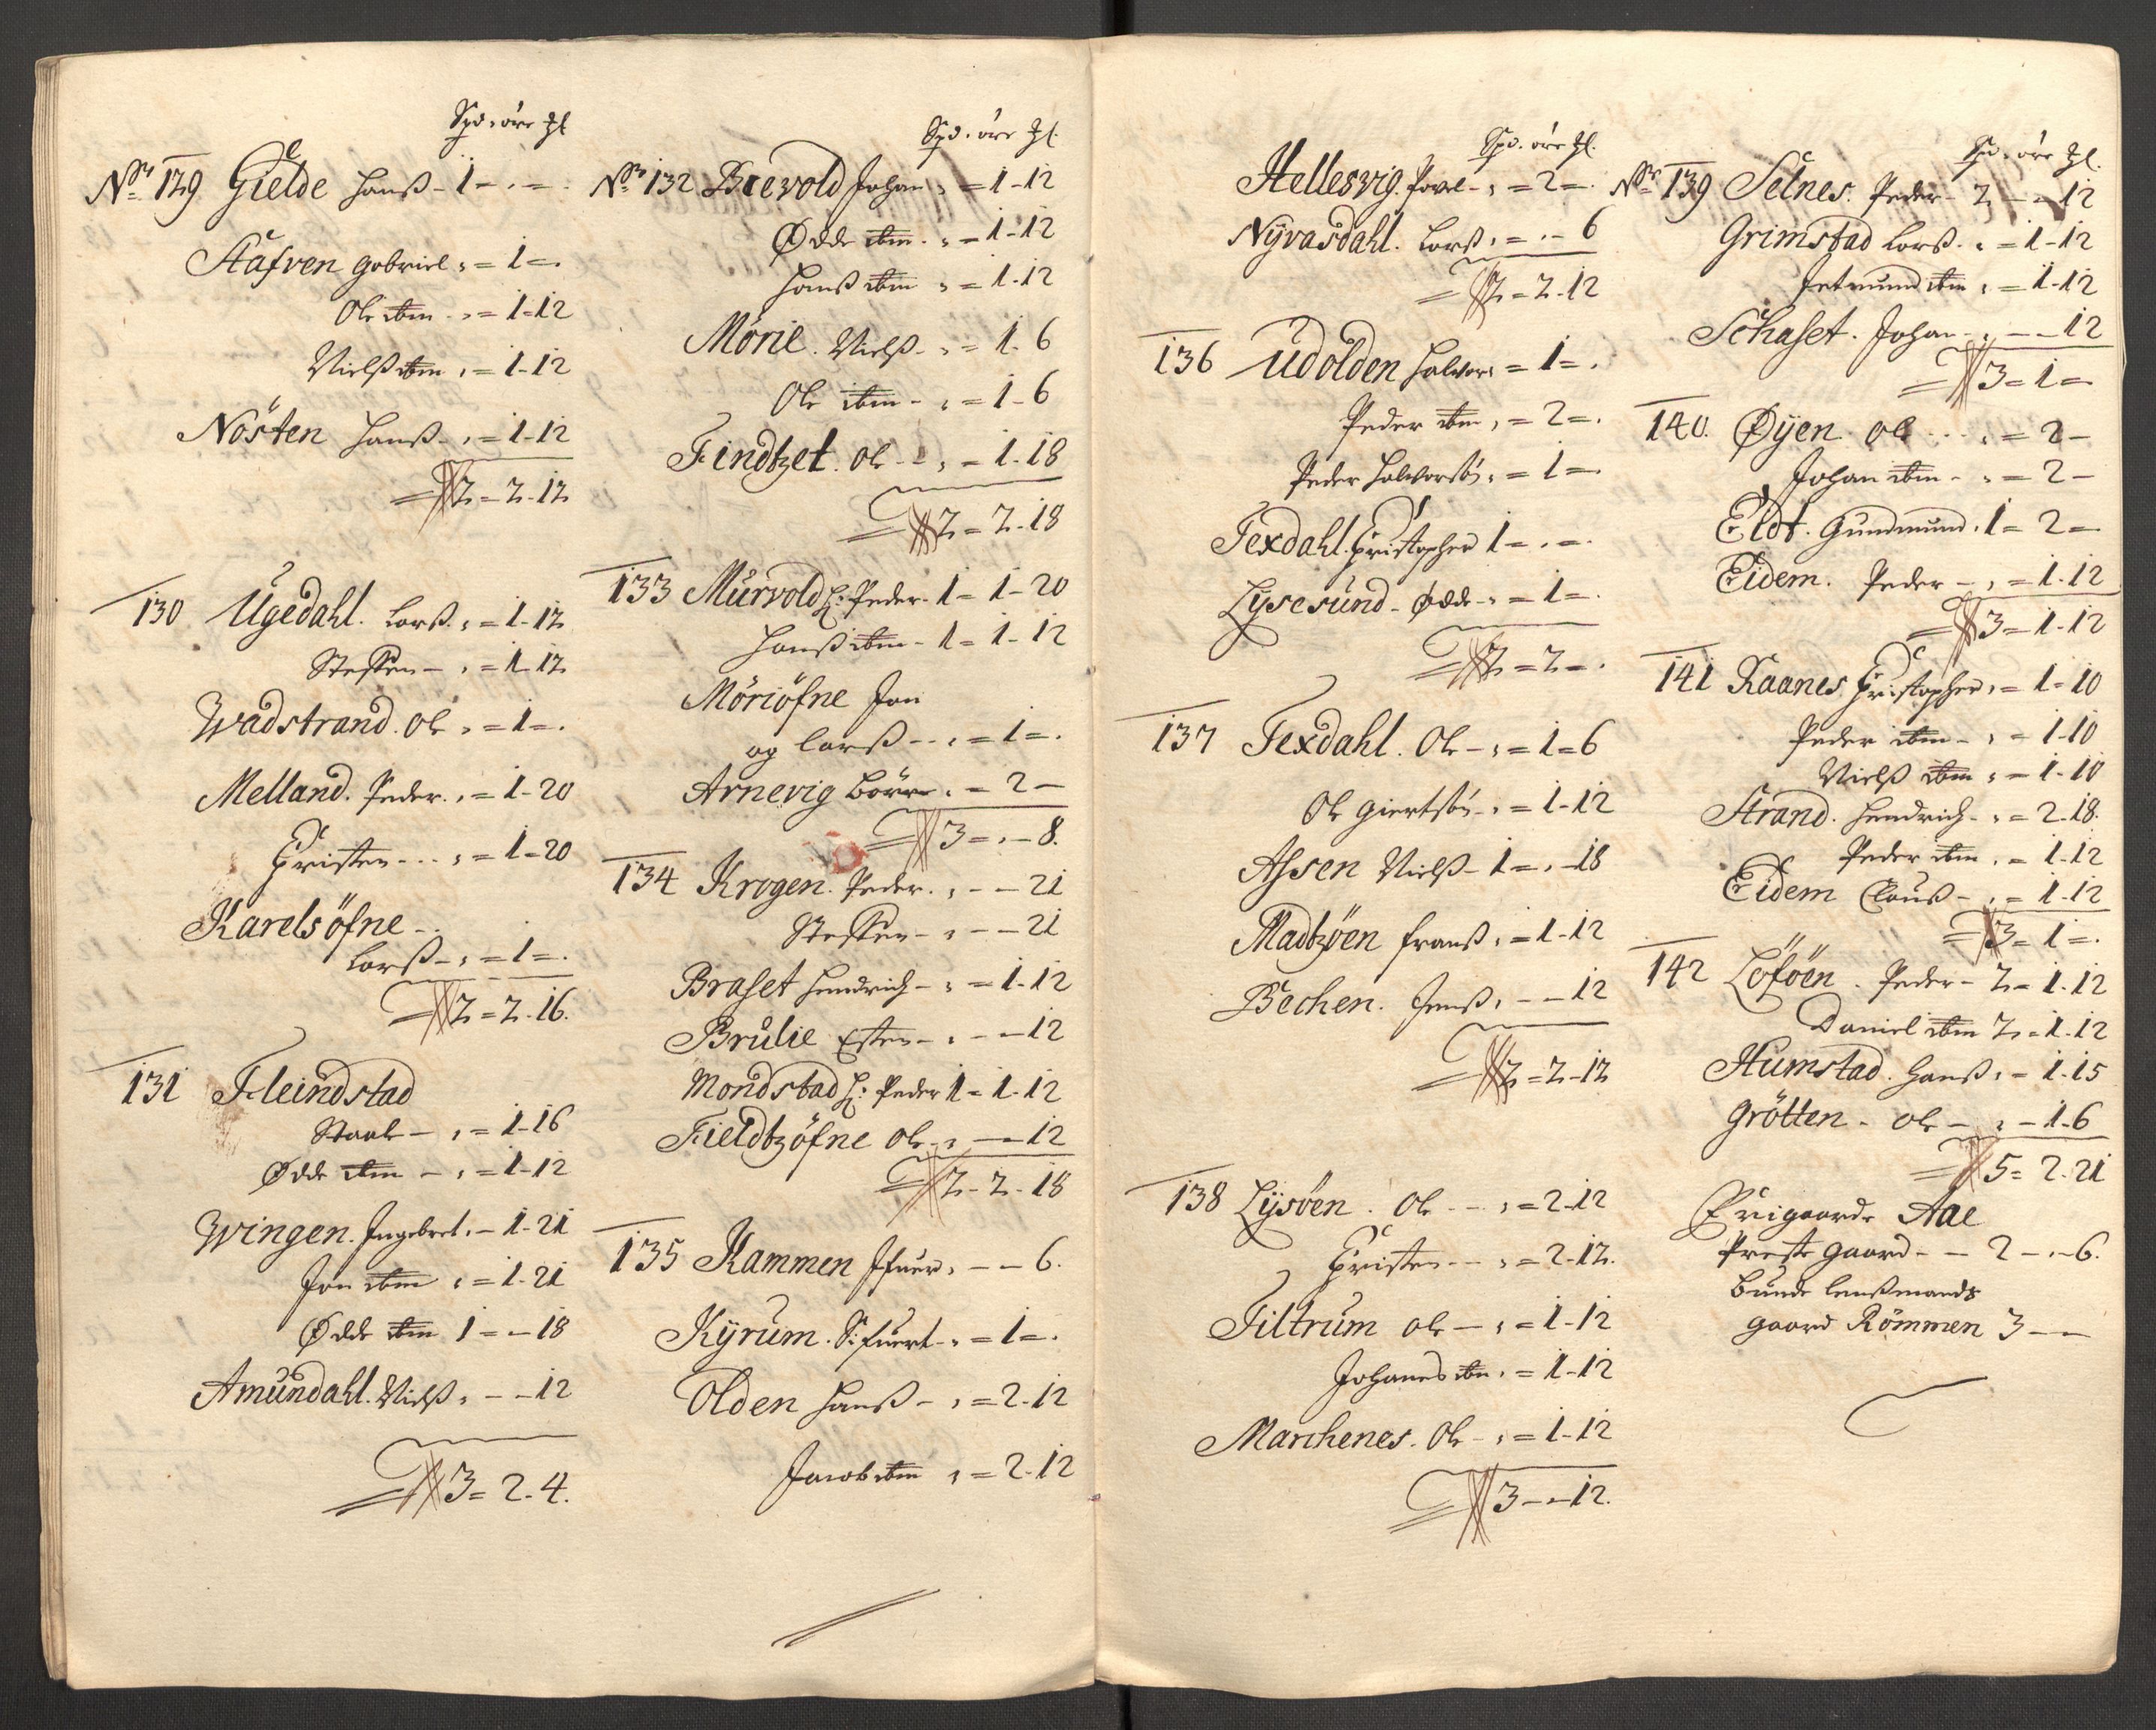 Spd. öre ₰l
No 129 Gielde Hanß - 1 - . - .
Stafren Gabriel , = 1 - .
Ole ibm - , = 1 - 12
Nielß ibm , = 1 - 12
Nösten Hanß - , = 1 - 12
2 = 2 - 12
130 Ugedahl. Larß. , = 1 - 12
Steffen - , = 1 - 12
Wadstrand. Ole , = 1 - .
Melland. Peder. , = 1 - 20
Christen - - , = 1 - 20
Karelsöfne -
Larß - , = 1 - .
2 = 2 - 16.
131 Fleindstad
- , = 1 - 16
Ødde ibm - , = 1 - 12
Wingen. Ingebret. - 1 - 21
Jon ibm , = 1 - 21
Ødde ibm 1 = - 18
Amundahl. Nielß , - - 12
3 = 2 - 4.
Spd. öre ₰l.
No 132 Brevold Johan , = 1 - 12
Ødde ibm. , = 1 - 12
Hanß ibm , = 1 - 12
Mörie. Nielß. , = 1 - 6
Ole ibm - , = 1 - 6
Findtzet. Ole - - , = 1 - 18
2 = 2 - 18
133 Murvold H: Peder. 1 = 1 - 20
Hanß ibm - 1 = 1 - 12
Möriöfne Jon
og Larß - - , = 1 = .
Arnevig Börre , = 2 -
3 = , - 8.
134 Krogen. Peder. , - - 21
Steffen - , - - 21
Braset Hendrich - , = 1 - 12
Brulie Esten - , - - 12
Mondstad H: Peder 1 = 1 - 12
Fieldtzöfne Ole - , - - 12
2 - 2 - 18
135 Kammen Ifuer , - - 6.
Kyrum. Sifuert - , = 1 = .
Olden Hanß - , = 2 - 12
Jacob ibm , = 2 - 12
Spd. öre ₰l.
Hellesvig. Povel - , = 2 = .
Nyvasdahl. Larß , = . - 6
2 = 2 - 12
136 Udolden Halvor , = 1 = .
Peder ibm , = 2 = .
Peder Halvorsön , = 1 = .
Texdahl. Christopher 1 - . - .
Lysesund - Ødde - , = 1 = .
2 = 2 = .
137 Texdahl. Ole - , = 1 = 6
Ole Giertsön - , = 1 - 12
Assen Nielß - 1 = , - 18
Madtzöen Franß , = 1 - 12
Bechen. Jenß , - - 12
2 = 2 - 12
138 Lysöen. Ole - - , = 2 - 12
Christen - - , = 2 - 12.
Tiltrum Ole - , = 1 - 12
Johanes ibm , = 1 - 12
Marchenes. Ole - , = 1 - 12
3 - - 12.
Spd. öre ₰l.
No 139 Selnes. Peder - 2 - - 12
Grimstad Larß. , = 1 - 12
ibm , = 1 - 12
Schaset. Johan - , - - 12
3 = 1 =
140. Øyen. Ole - - , = 2 -
Johan ibm - , = 2 -
Eldt. Gundmund. 1 = 2 =
Eidem. Peder - , = 1 - 12
3 = 1 - 12
141 Raanes Christopher , = 1 - 10
Peder ibm - , = 1 - 10
Nielß ibm , = 1 - 10
Strand. Hendrich - , = 2 - 18.
Peder ibm , = 1 - 12
Eidem Clauß - , = 1 - 12
3 = 1 = .
142 Löföen. Peder - 2 = 1 - 12
Daniel ibm 2 = 1 - 12
Humstad. Hanß , = 1 - 15
Grötten - Ole - , - 1 - 6
5 = 2 - 21
Frigaarde Aae
Preste Gaard - - 2 - , - 6.
Bunde Lenßmands
gaard Römmen 3 - -